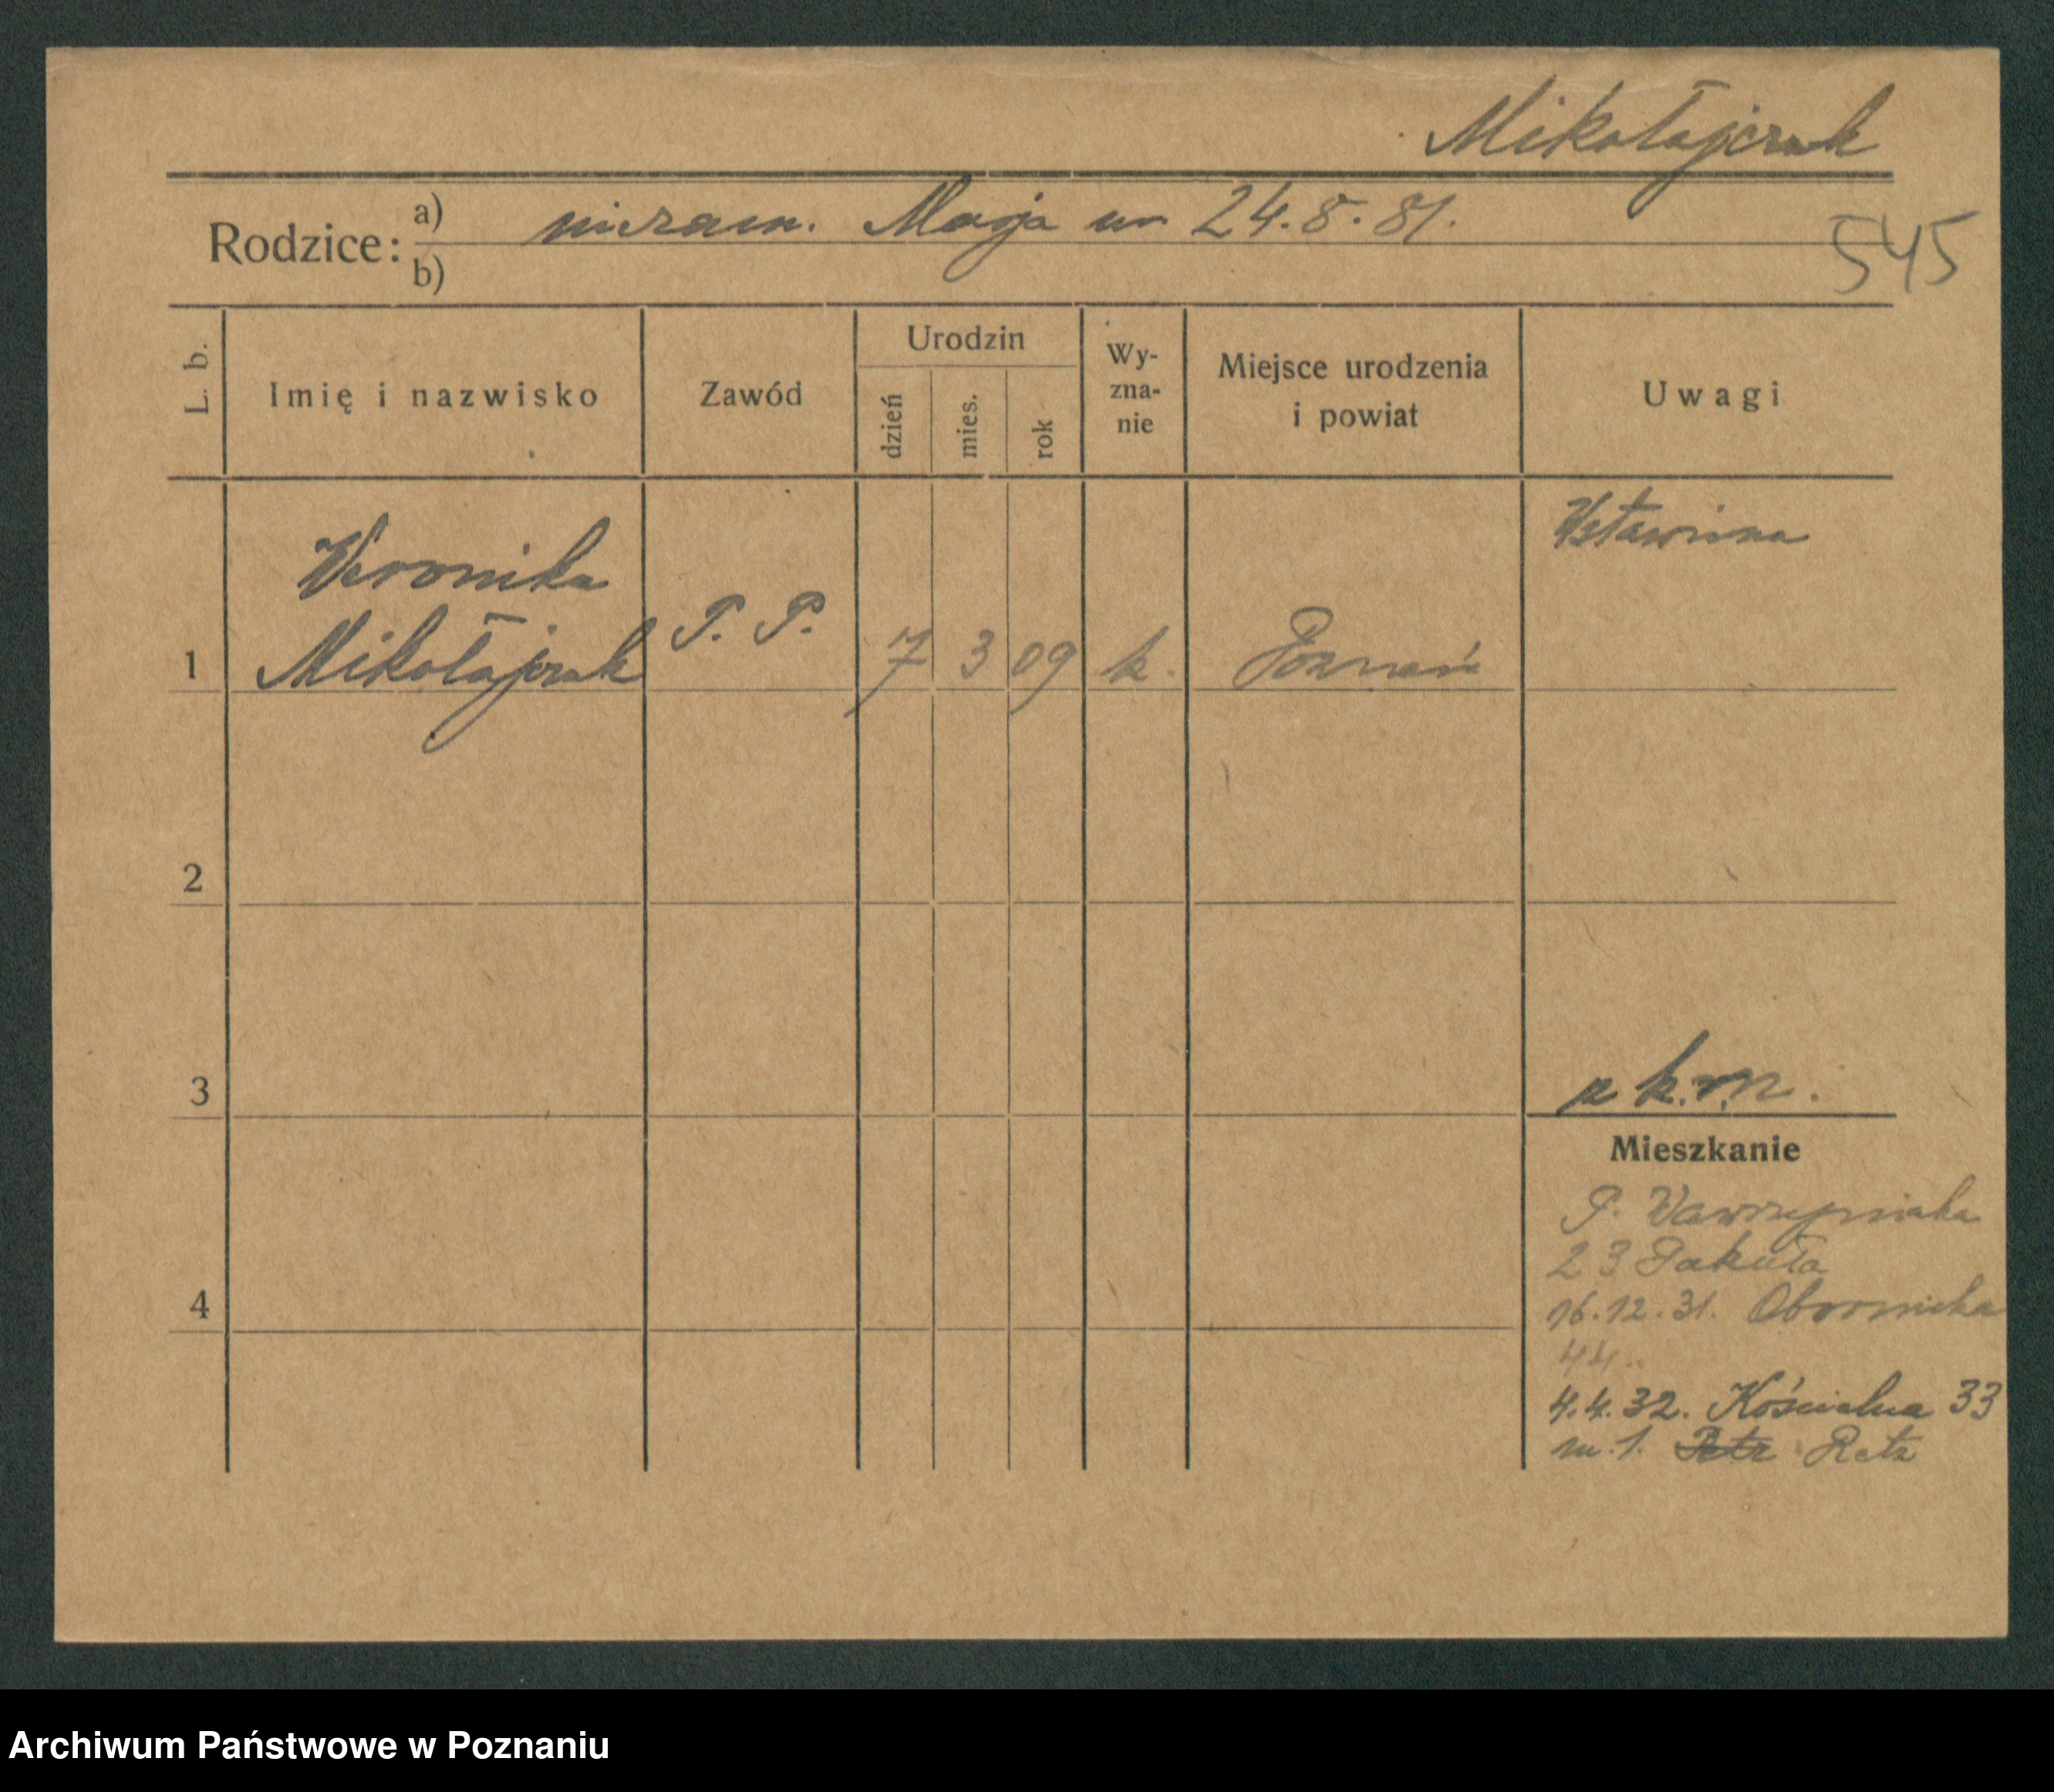 Mikołajczak
Rodzice: a) niezam. Marja ur 24.8.81.
b)
545
L. b.
Imię i nazwisko
Zawód
Urodzin
dzień
mies.
rok
Wy-
zna-
nie
Miejsce urodzenia
i powiat
Uwagi
1
Weronika
Mikołajczak
P. P.
7
3
09
k.
Poznań
Wstawiona
2
3
4
Mieszkanie
P. Wawrzyniaka
23 Pakuła
16.12.31. Obornicka
44.
4.4.32. Kościelna 33
m. 1. Ratz
Archiwum Państwowe w Poznaniu